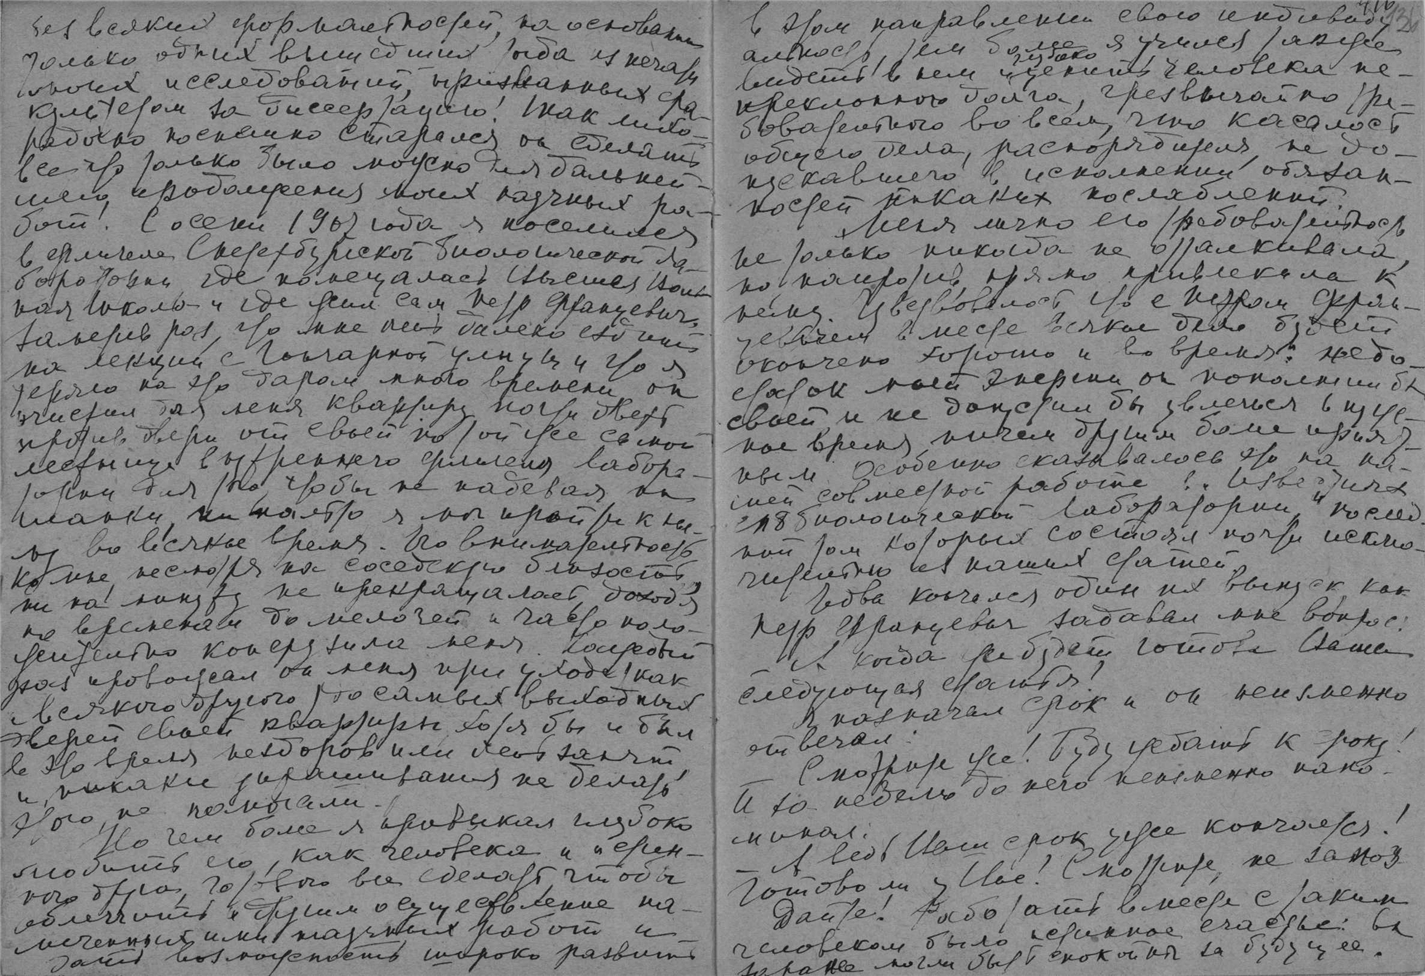 без всяких формальностей, на основании
только одних вышедших тогда из печати
моих исследований, признанных фа-
культетом за диссертацию! И как
поспешно старался он сделать
все что только было можно для дальней-
шего продолжения моих научных ра-
бот! С осени 190 года я поселился
в флигеле Спетербургской биологической ла-
боратории где помещалась Высшая Воль-
ная школа и где жил сам Петр Францевич.
Заметив раз, что мне далеко ездить
на лекции с Гончарной улицы и что я
теряю на это даром много времени он
очистил для меня квартиру почти дверь
против двери от своей по той же самой
лестнице внутреннего флигеля Лабора-
тории для того, чтобы не надевая ни
шапки, ни пальто я мог пройти к не-
му во всякое время. Его внимательность
ко мне, несмотря на соседскую близость
ни на минуту не прекращалась доходя
по временам до мелочей и часто поло-
жительно конфузила меня. Каждый
раз провожал он меня при уходе, как
и всякого другого, до самых выходных
дверей своей квартиры, хотя бы и был
в это время нездоров или занят
и никакие упрашивания не делать
этого, не помогали.
Но чем более я привыкал глубоко
любить его, как человека и искрен-
него друга, готового все сделать чтобы
облегчить и другим осуществление на-
меченных ими научных работ и
дать возможность широко развить
в этом направлении свою индивиду-
альность, тем более я учился также
видеть в нем и глубоко ценить человека не-
преклонного долга, чрезвычайно тре-
бовательного во всем, что касалось
общего дела, распорядителя, не до-
пускавшего в исполнении обязан-
ностей никаких послаблений.
Меня лично его требовательность
не только никогда не отталкивала,
но напротив прямо привлекала к
нему. Чувствовалось что с Петром Фран-
цевичем вместе всякое дело будет
окончено хорошо и во время: недо-
статок моей энергии он пополнил бы
своей, и не допустил бы увлечься в нуж-
ное время ничем другим более прият-
ным. Особенно сказывалось это на на-
шей совместной работе в „Известиях
СПБ биологической Лаборатории", послед-
ний том которых состоял почти исклю-
чительно из наших статей.
Едва кончался один их выпуск, как
Петр Францевич задавал мне вопрос:
А когда же будет готова Ваша
следующая статья?
Я назначал срок и он неизменно
отвечал:
Смотрите же! Буду ждать к сроку!
И за неделю до него неизменно напо-
минал:
— А ведь Ваш срок уже кончается!
Готово ли у Вас! Смотрите, не запоз-
дайте! Работать вместе с таким
человеком было истинное счастье: вы
заранее могли быть спокойны за будущее.